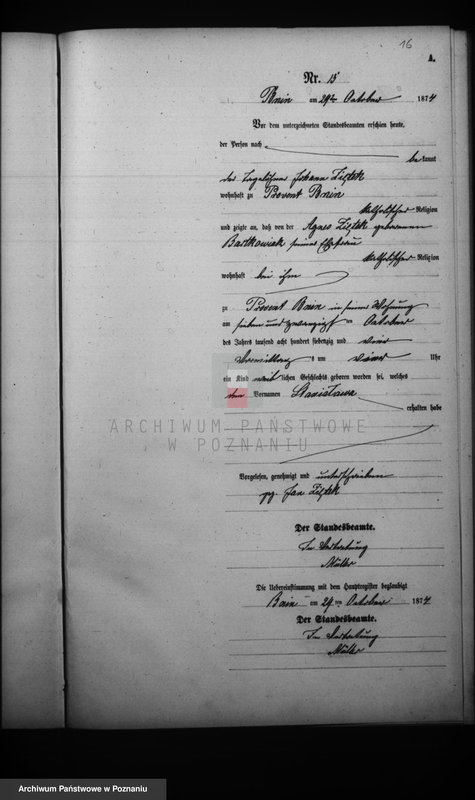 16
A.
Nr. 15
Bnin am 29ten October 1874
Vor dem unterzeichneten Standesbeamten erschien heute,
der Person nach
bekannt
der Tagelöhner Johann Ziętek
wohnhaft zu Provent Bnin
katholischer Religion
und zeigte an, daß von der Agnes Ziętek geborenen
Bartkowiak seiner Ehefrau
katholischer Religion
wohnhaft bei ihm
zu Provent Bnin in seiner Wohnung
am sieben und zwanzigst en October
des Jahres tausend acht hundert siebenzig und vier
Vormittags um Uhr
ein Kind weiblichen Geschlechts geboren worden sei, welches
den Vornamen Stanisława
erhalten habe
ARCHIWUM PAŃSTWOWE
W POZNANIU
Vorgelesen, genehmigt und unterschrieben
gez. Jan Ziętek
Der Standesbeamte.
In Vertretung
Müller
Die Uebereinstimmung mit dem Hauptregister beglaubigt
Bnin am 29ten October 1874
Der Standesbeamte.
In Vertretung
Müller
Archiwum Państwowe w Poznaniu